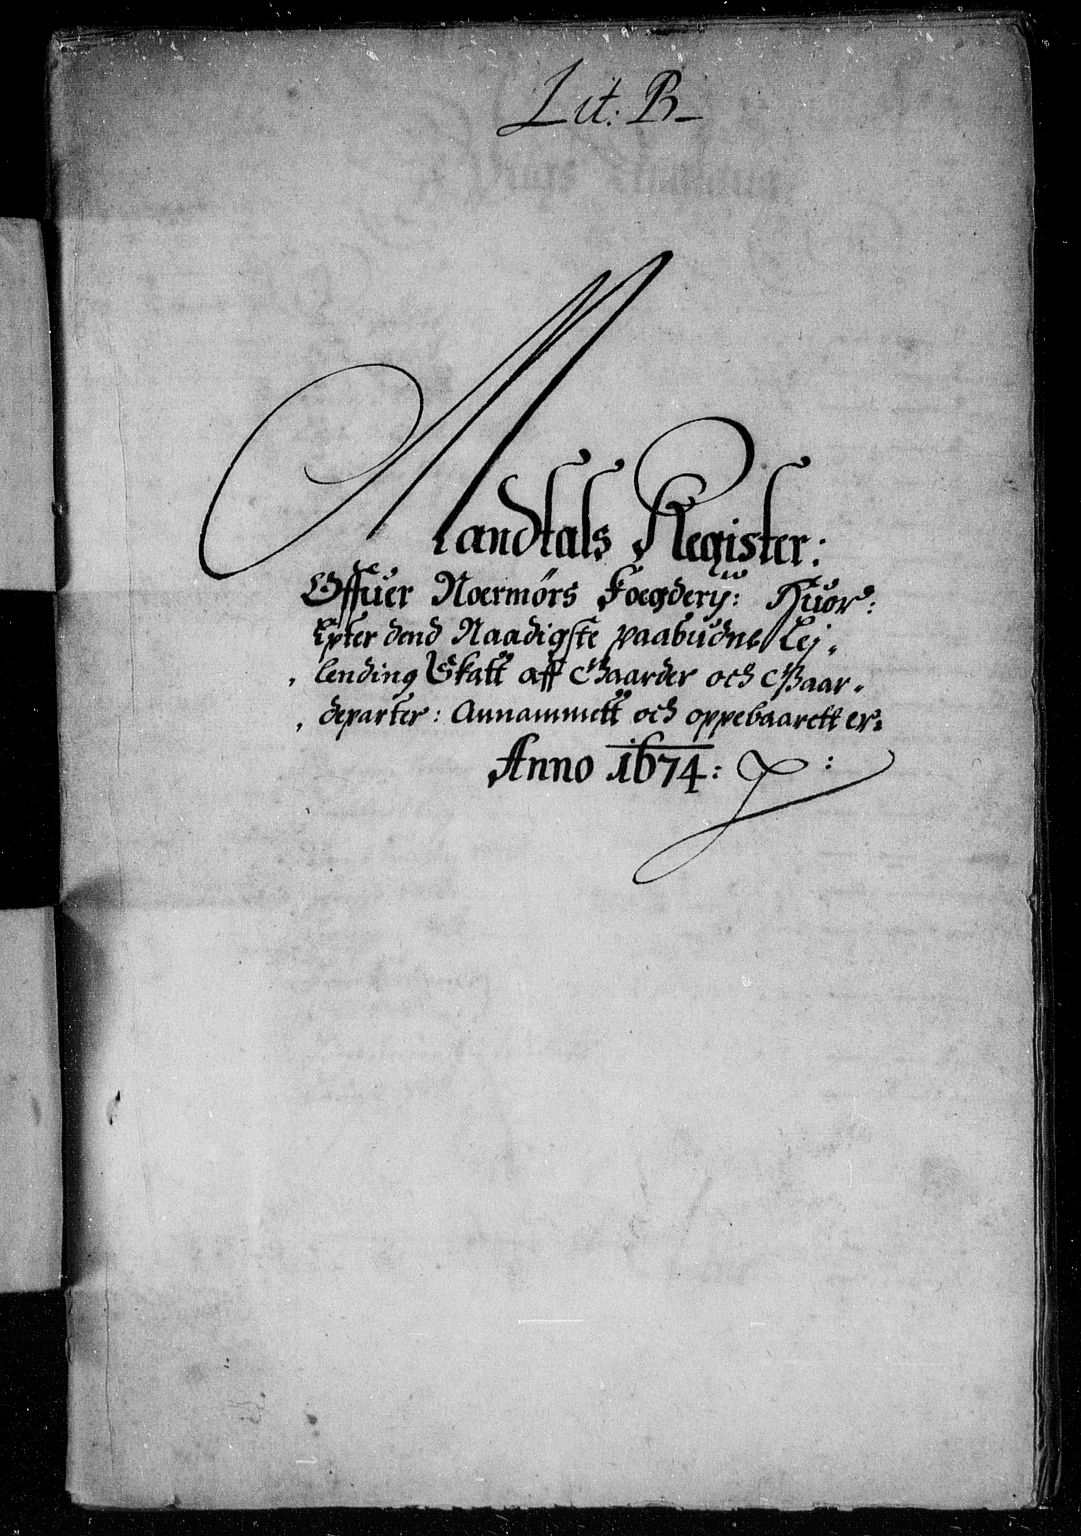 Lit: B
Mandtals Register:
Offuer Noermörs Foegderij: Huor:
Epter dend Naadigste paabudne Lej,,
,, lending Skatt aff Gaarder och Gaar,,
,, departer: Annammett och oppebaarett er:
Anno 1674: